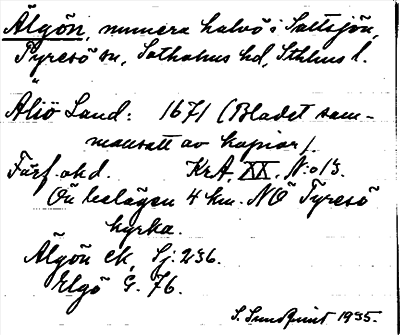 Älgön, numera halvö i Saltsjön,
Tyresö sn, Sotholms hd, Sthlms l.
Äliö Land: 1671 (Bladet sam-
mansatt av kopior).
Färf. okd. KrA, XX, N:o 13.
Ön belägen 4 km. NÖ Tyresö
kyrka.
Älgön ek, Sj. 236.
Elgö G. 76.
S. Sundquist 1935.